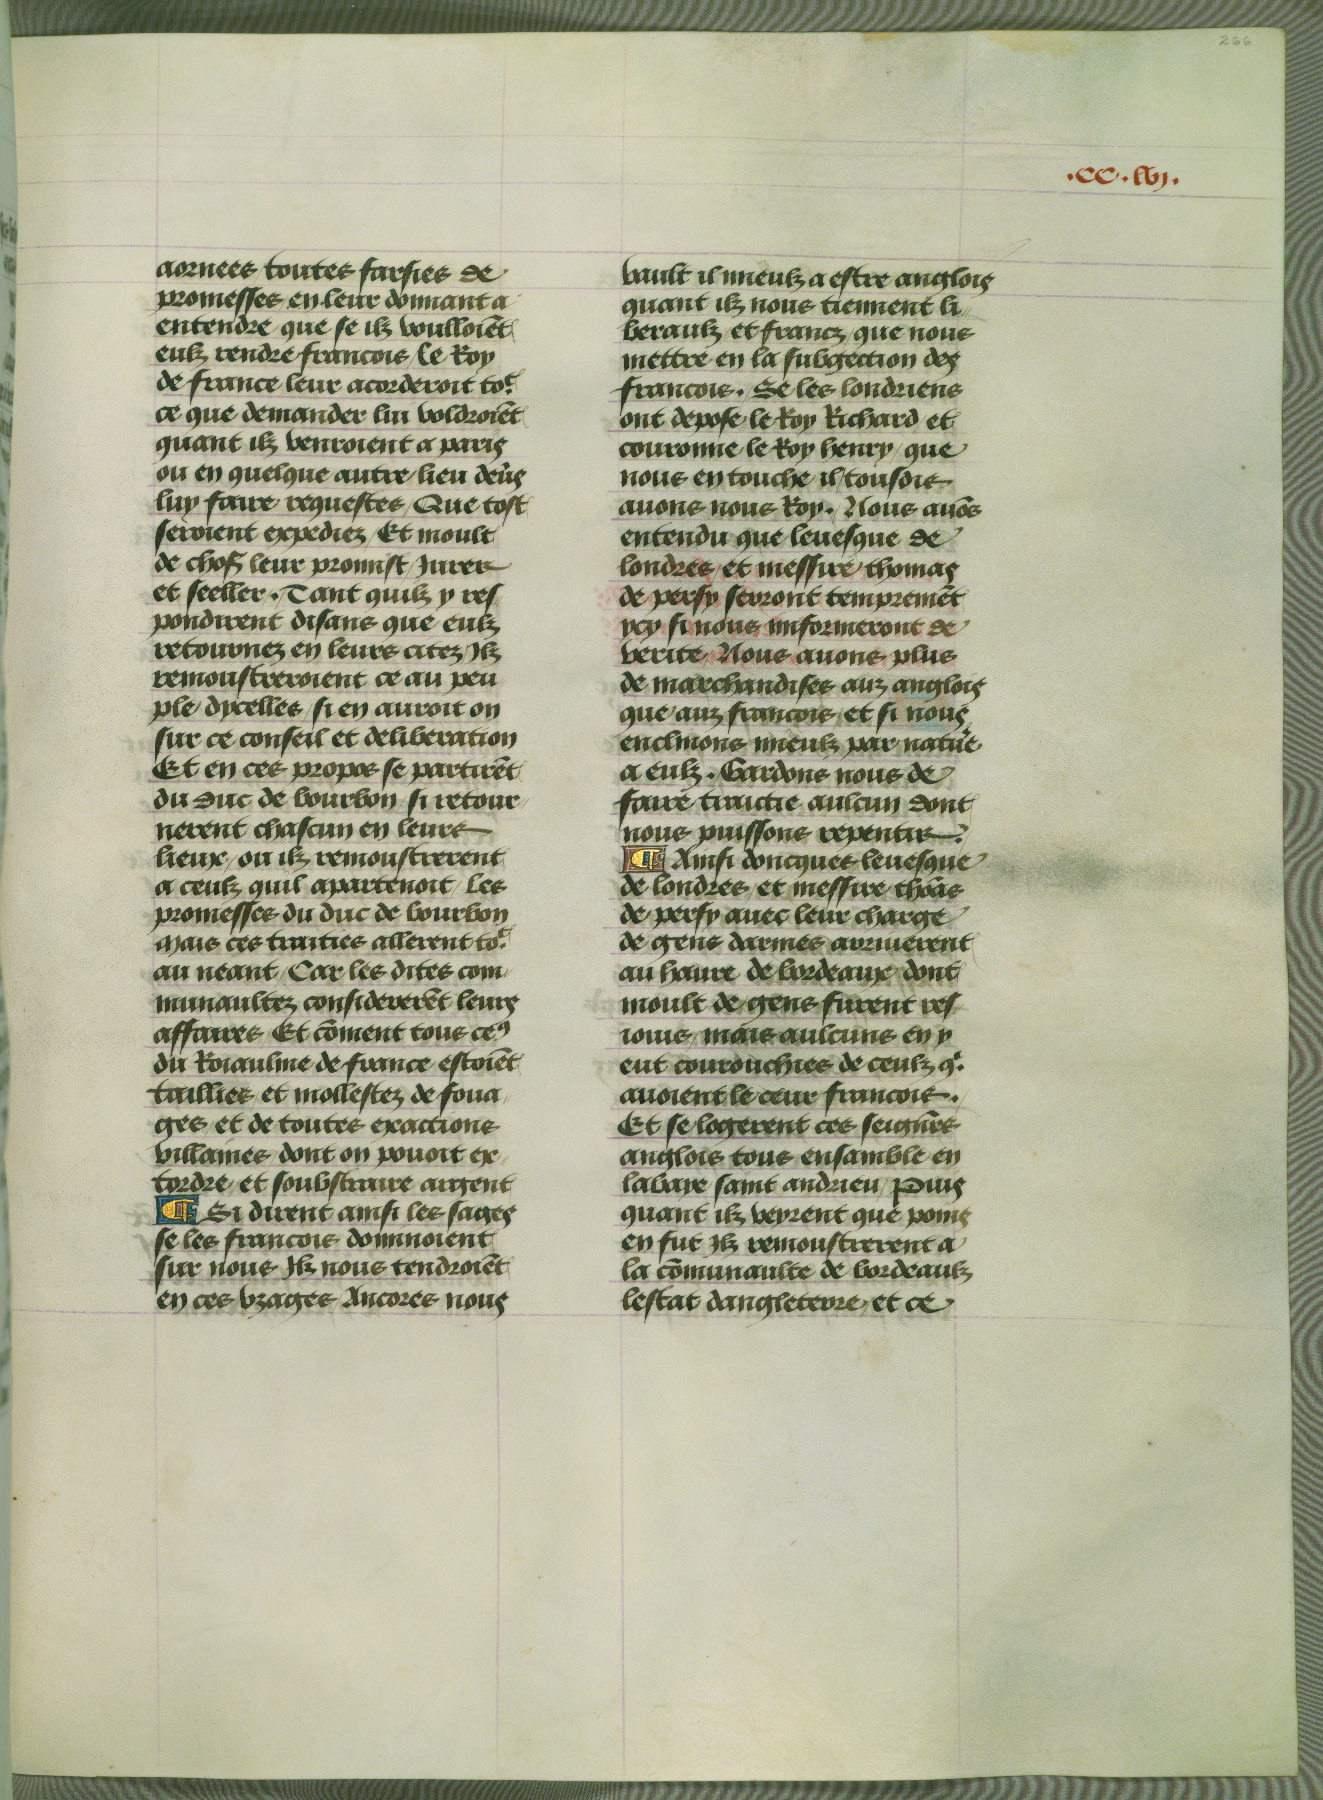 266
.CC.lvj.
aornees toutes farsies de
promesses en leur donnant a
entendre que se ilz voulloiẽt
eulz rendre francois le Roy
de france leur acorderoit to9
ce que demander lui voldroiẽt
quant ilz venroient a paris
ou en quelque autre lieu deũs
luy faire requestes Que tost
seroient expediez Et moult
de chos leur promist Jurer
et seeller . Tant quilz y res
pondirent disans que eulz
retournez en leurs citez Ilz
remoustreroient ce au peu
ple dycelles si en auroit on
sur ce conseil et deliberation
Et en ces propos se partirẽt
du Duc de bourbon si retour
nerent chascun en leurs
lieux ou ilz remoustrerent
a ceulz quil apartenoit les
promesses du duc de bourbon
Mais ces traities allerent to9
au neant Car les dites com
munaultez considererẽt leurs
affaires Et cõment tous ce9
du Roiaulme de france estoiẽt
tailliez et mollestez de foua
ges et de toutes exactions
villaines dont on pouoit ex
tordre et soubstraire argent
Si dirent ainsi les sages
se les francois dominoient
sur nous Ilz nous tendroiẽt
en ces vzages Ancores nous
vault il mieulz a estre anglois
quant ilz nous tiennent li
beraulz et francz que nous
mettre en la subgection des
francois . Se les londriens
ont depose le Roy Richard et
couronne le Roy henry que
nous en touche il tousdis
auons nous Roy . Nous auõs
entendu que leuesque de
londres et messire thomas
de persy seront tempremẽt
ycy si nous imformeront de
verite Nous auons plus
de marchandises auz anglois
que auz francois et si nous
enclinons mieulz par natũe
a eulz . Gardons nous de
faire traictie aulcun dont
nous puissons repentir
Ainsi doncques leuesque
de londres et messire thõas
de persy auec leur charge
de gens darmes arriuerent
au haure de bordeaux dont
moult de gens furent res
iouis mais aulcuns en y
eut courouchies de ceulz q̃
auoient le ceur francois .
Et se logerent ces seigñrs
anglois tous ensamble en
labaye saint andrieu Puis
quant ilz veyrent que poins
en fut Ilz remoustrerent a
la cõmunaulte de bordeaulz
lestat dangleterre et ce